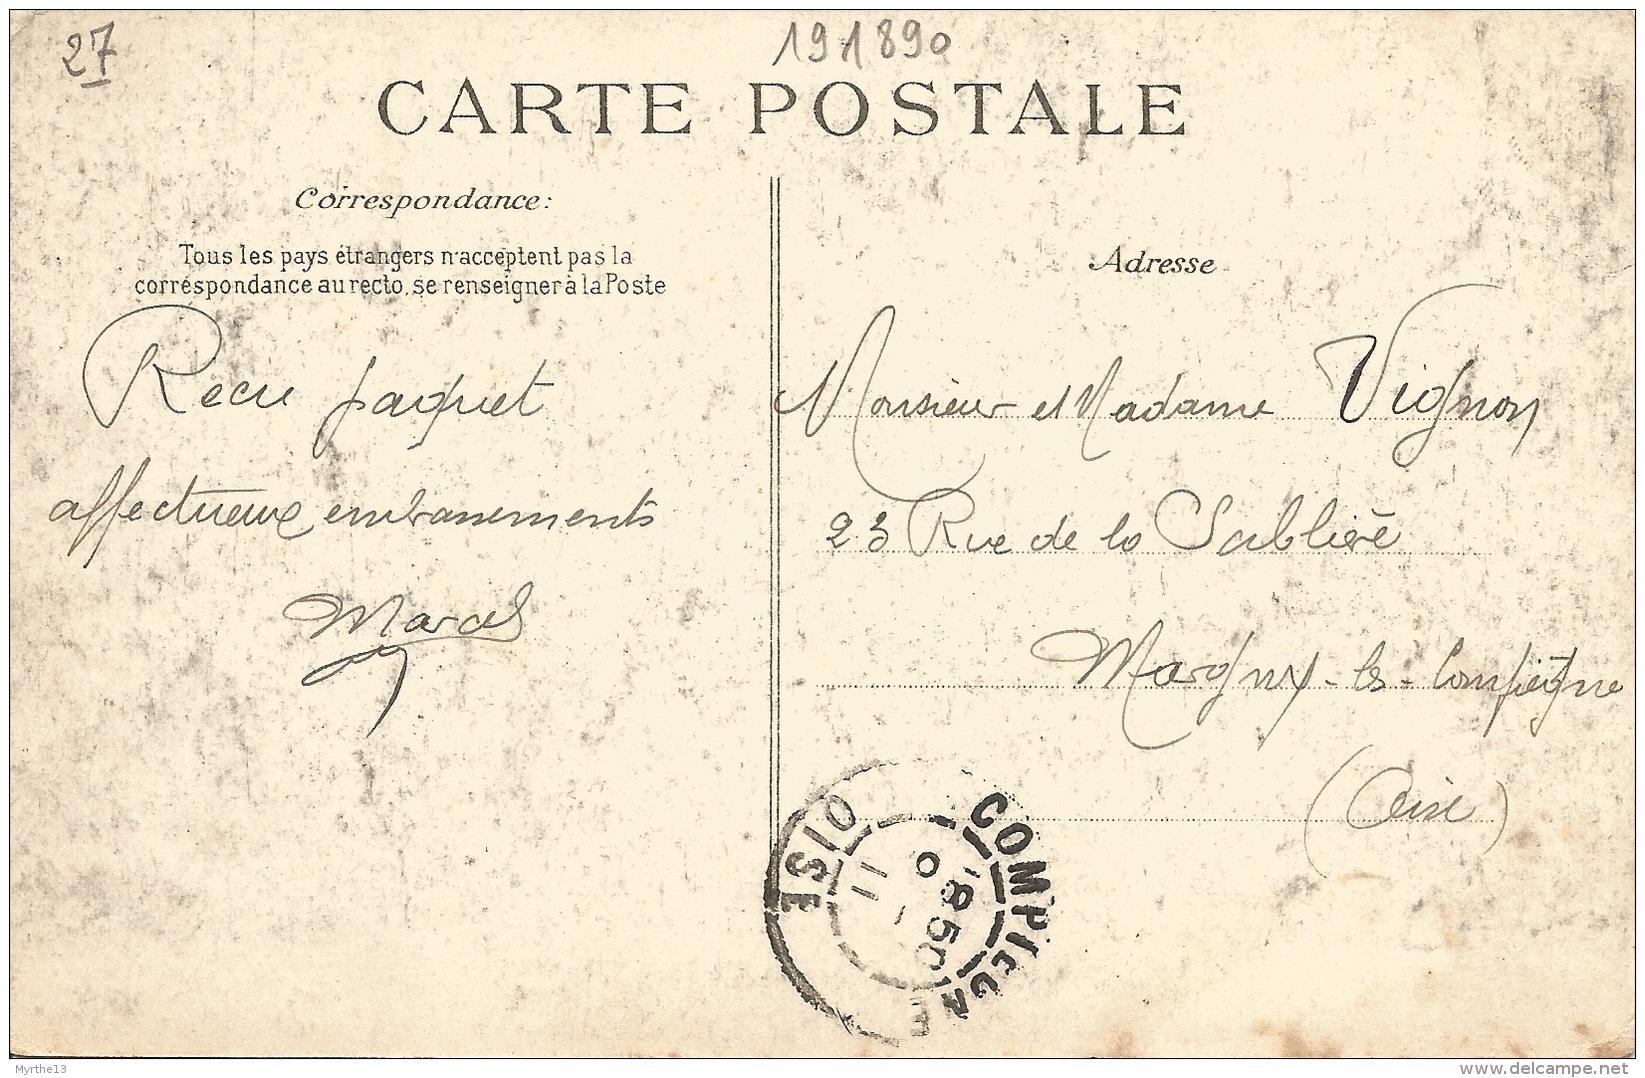 27
191890
CARTE POSTALE
Correspondance:
Tous les pays étrangers n'acceptent pas la
correspondance au recto, se renseigner à la Poste
Recu paquet
affectueux embrassements
Marcel
Adresse
Monsieur et Madame Vignon
23 Rue de la Sablière
Margny-les-Compiègne
(Oise)
COMPIEGNE
OISE
8 50
11
Myrthe13
delcampe.net